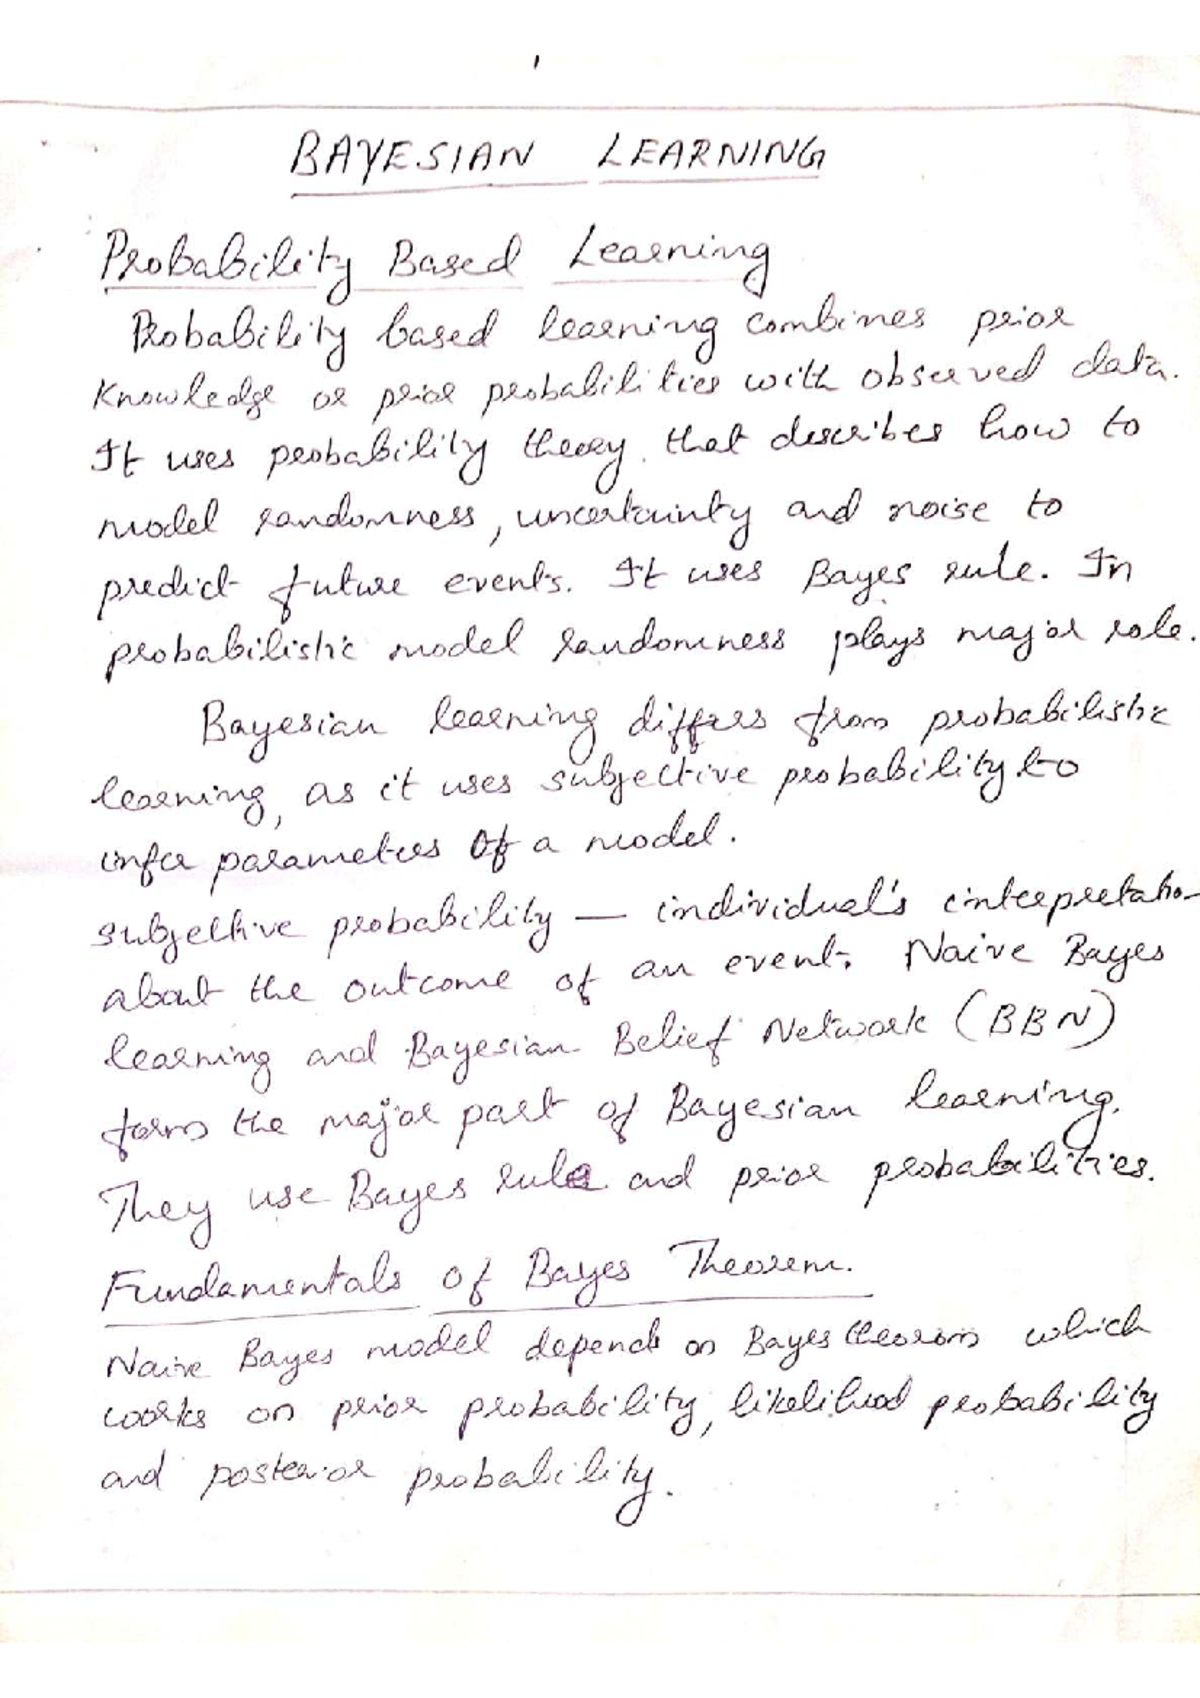 BAYESIAN LEARNING
Probability Based Learning
Probability based learning combines prior
Knowledge or prior probabilities with observed data.
It uses probability theory that describes how to
model randomness, uncertainty and noise to
predict future events. It uses Bayes rule. In
probabilistic model randomness plays major role.
Bayesian learning differs from probabilistic
learning, as it uses subjective probability to
infer parameters of a model.
subjective probability — individual's interpretatio
about the outcome of an event. Naive Bayes
learning and Bayesian Belief Network (BBN)
form the major part of Bayesian learning.
They use Bayes rule and prior probabilities.
Fundamentals of Bayes Theorem.
Naive Bayes model depends on Bayes theorem which
works on prior probability, likelihood probability
and posterior probability.